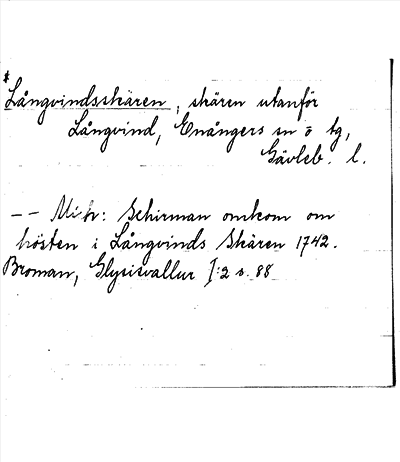 * Långvindsskären, skären utanför
Långvind, Enångers sn o tg,
Gävleb. l.
-- Mich: Schirman omkom om
hösten i Långvinds Skären 1742.
Broman, Glysisvallur I:2 s. 88